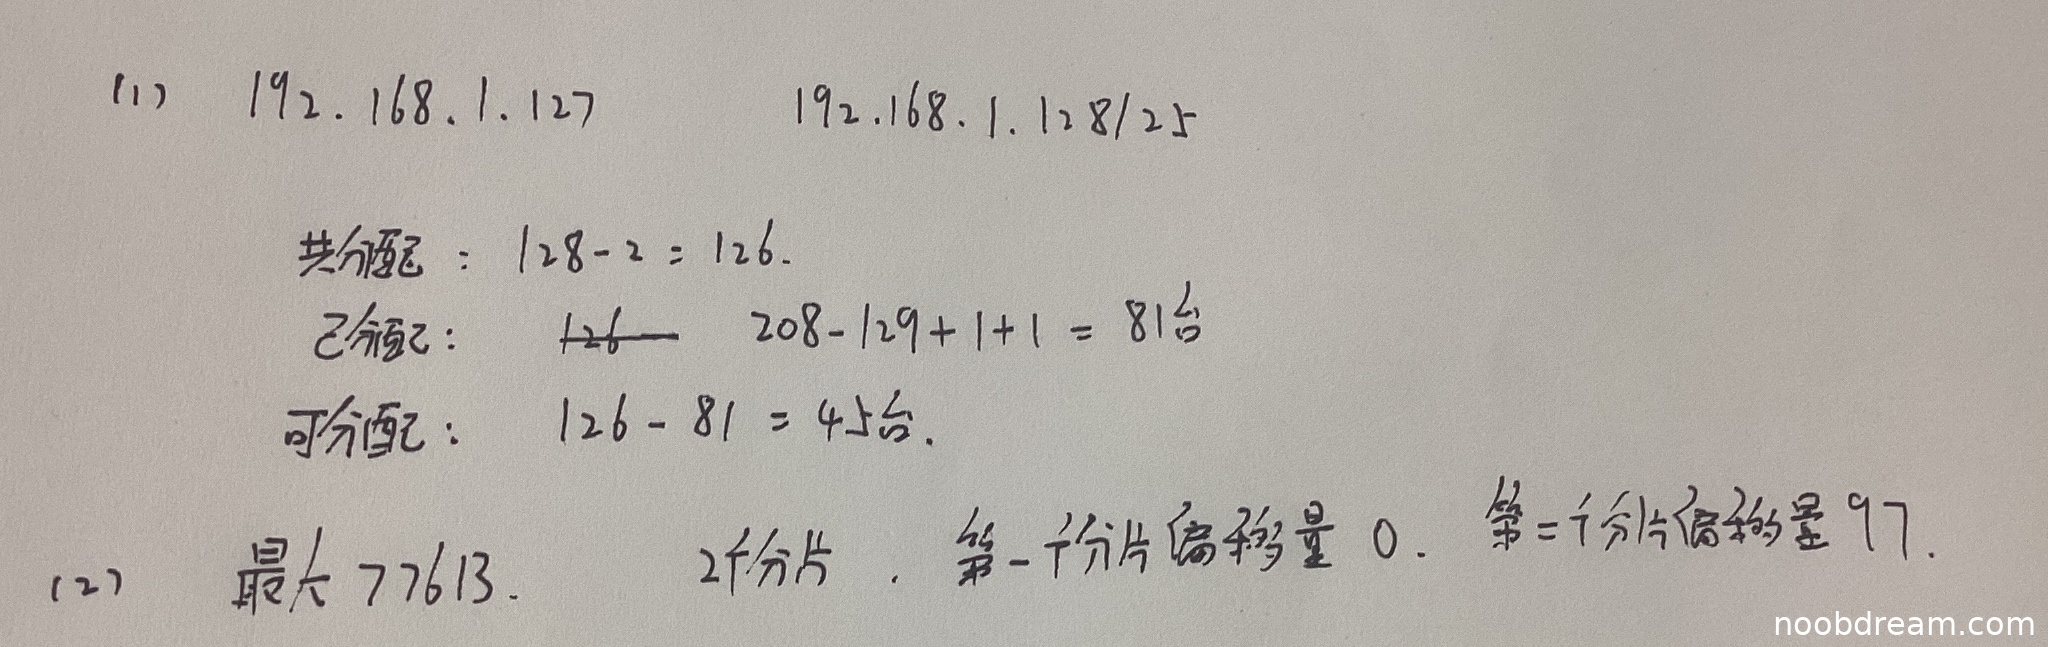 (1) 192.168.1.127 192.168.1.128/25
共分配: 128-2=126.
已分配: 126 208-129+1+1=81台
可分配: 126-81=45台.
(2) 最大776B. 2个分片. 第一个分片偏移量0. 第二个分片偏移量97.
noobdream.com